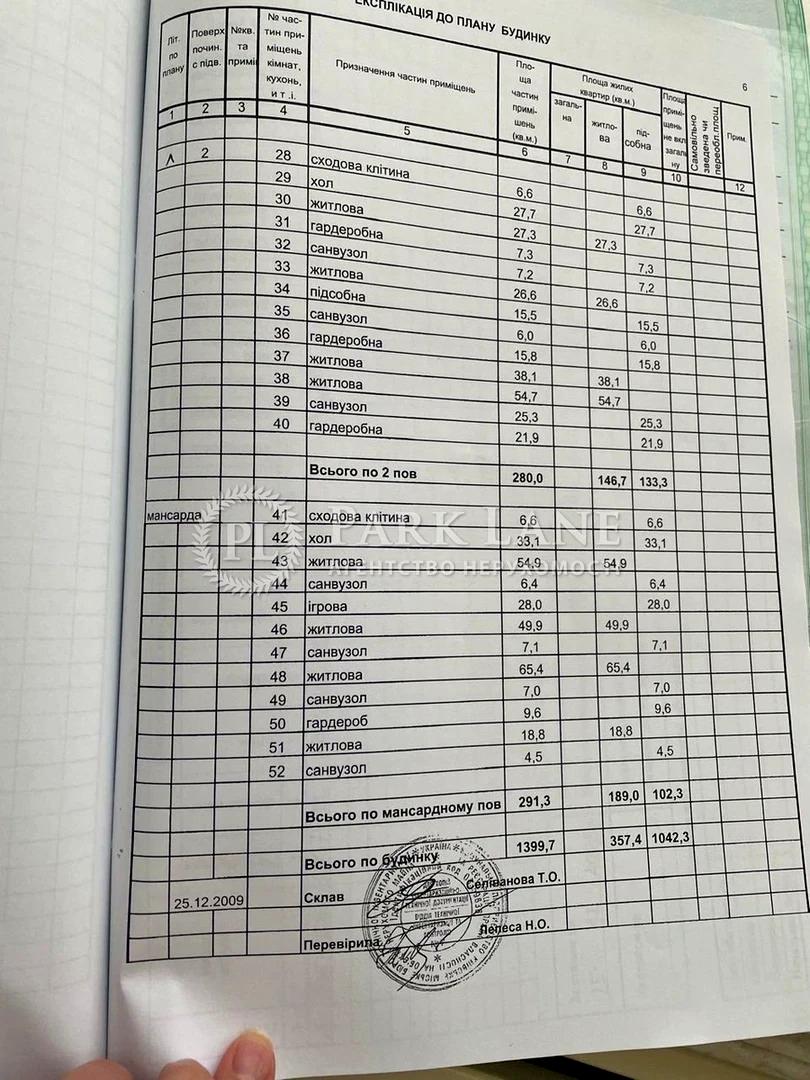 ЕКСПЛІКАЦІЯ ДО ПЛАНУ БУДИНКУ
6
Літ. по плану | Поверх почин. с підв. | №кв. та приміщ | № час-тин при-міщень кімнат, кухонь, и т .і. | Призначення частин приміщень | Пло-ща частин примі-шень (кв.м.) | Площа жилих квартир (кв.м.) | загаль-на | житло-ва | під-собна | Площа примі-щень не вкл. загальну | Самовільно зведена чи переобл.площ | Прим.
1 2 3 4 5 6 7 8 9 10 12
Λ 2 28 сходова клітина 6,6 6,6
29 хол 27,7 27,7
30 житлова 27,3 27,3
31 гардеробна 7,3 7,3
32 санвузол 7,2 7,2
33 житлова 26,6 26,6
34 підсобна 15,5 15,5
35 санвузол 6,0 6,0
36 гардеробна 15,8 15,8
37 житлова 38,1 38,1
38 житлова 54,7 54,7
39 санвузол 25,3 25,3
40 гардеробна 21,9 21,9
Всього по 2 пов 280,0 146,7 133,3
мансарда 41 сходова клітина 6,6 6,6
42 хол 33,1 33,1
43 житлова 54,9 54,9
44 санвузол 6,4 6,4
45 ігрова 28,0 28,0
46 житлова 49,9 49,9
47 санвузол 7,1 7,1
48 житлова 65,4 65,4
49 санвузол 7,0 7,0
50 гардероб 9,6 9,6
51 житлова 18,8 18,8
52 санвузол 4,5 4,5
Всього по мансардному пов 291,3 189,0 102,3
Всього по будинку 1399,7 357,4 1042,3
25.12.2009 Склав Селіванова Т.О.
Перевірила Лепеса Н.О.
PL PARK LANE
АГЕНТСТВО НЕРУХОМОСТІ
УКРАЇНА